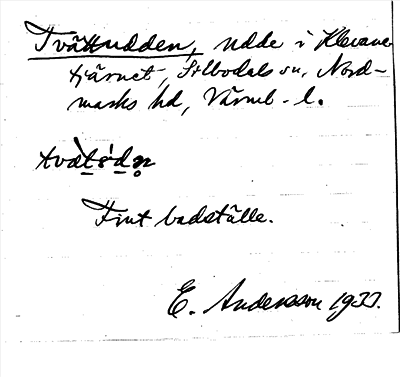 Tvättudden, udde i Klevane-
tjärnet, Silbodals sn, Nord-
marks hd, Värml. l.
tvätudn
Fint badställe.
E. Andersson 1933.